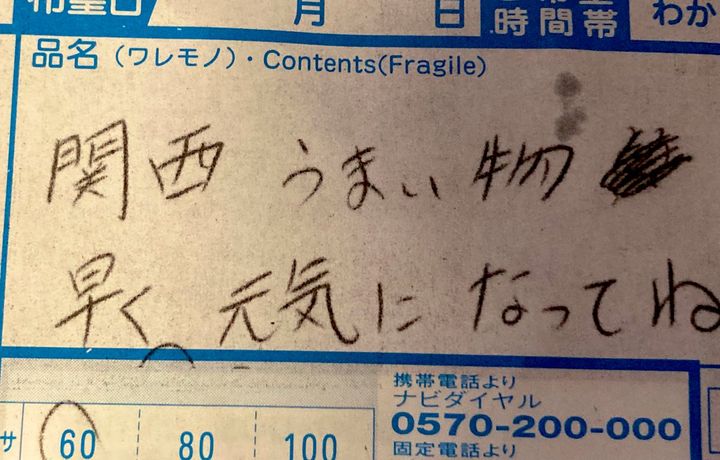 月 日 時間帯 わか
品名（ワレモノ）・Contents(Fragile)
関西 うまい物
早く 元気に なってね
携帯電話より
ナビダイヤル
サ 60 80 100 0570-200-000
固定電話より